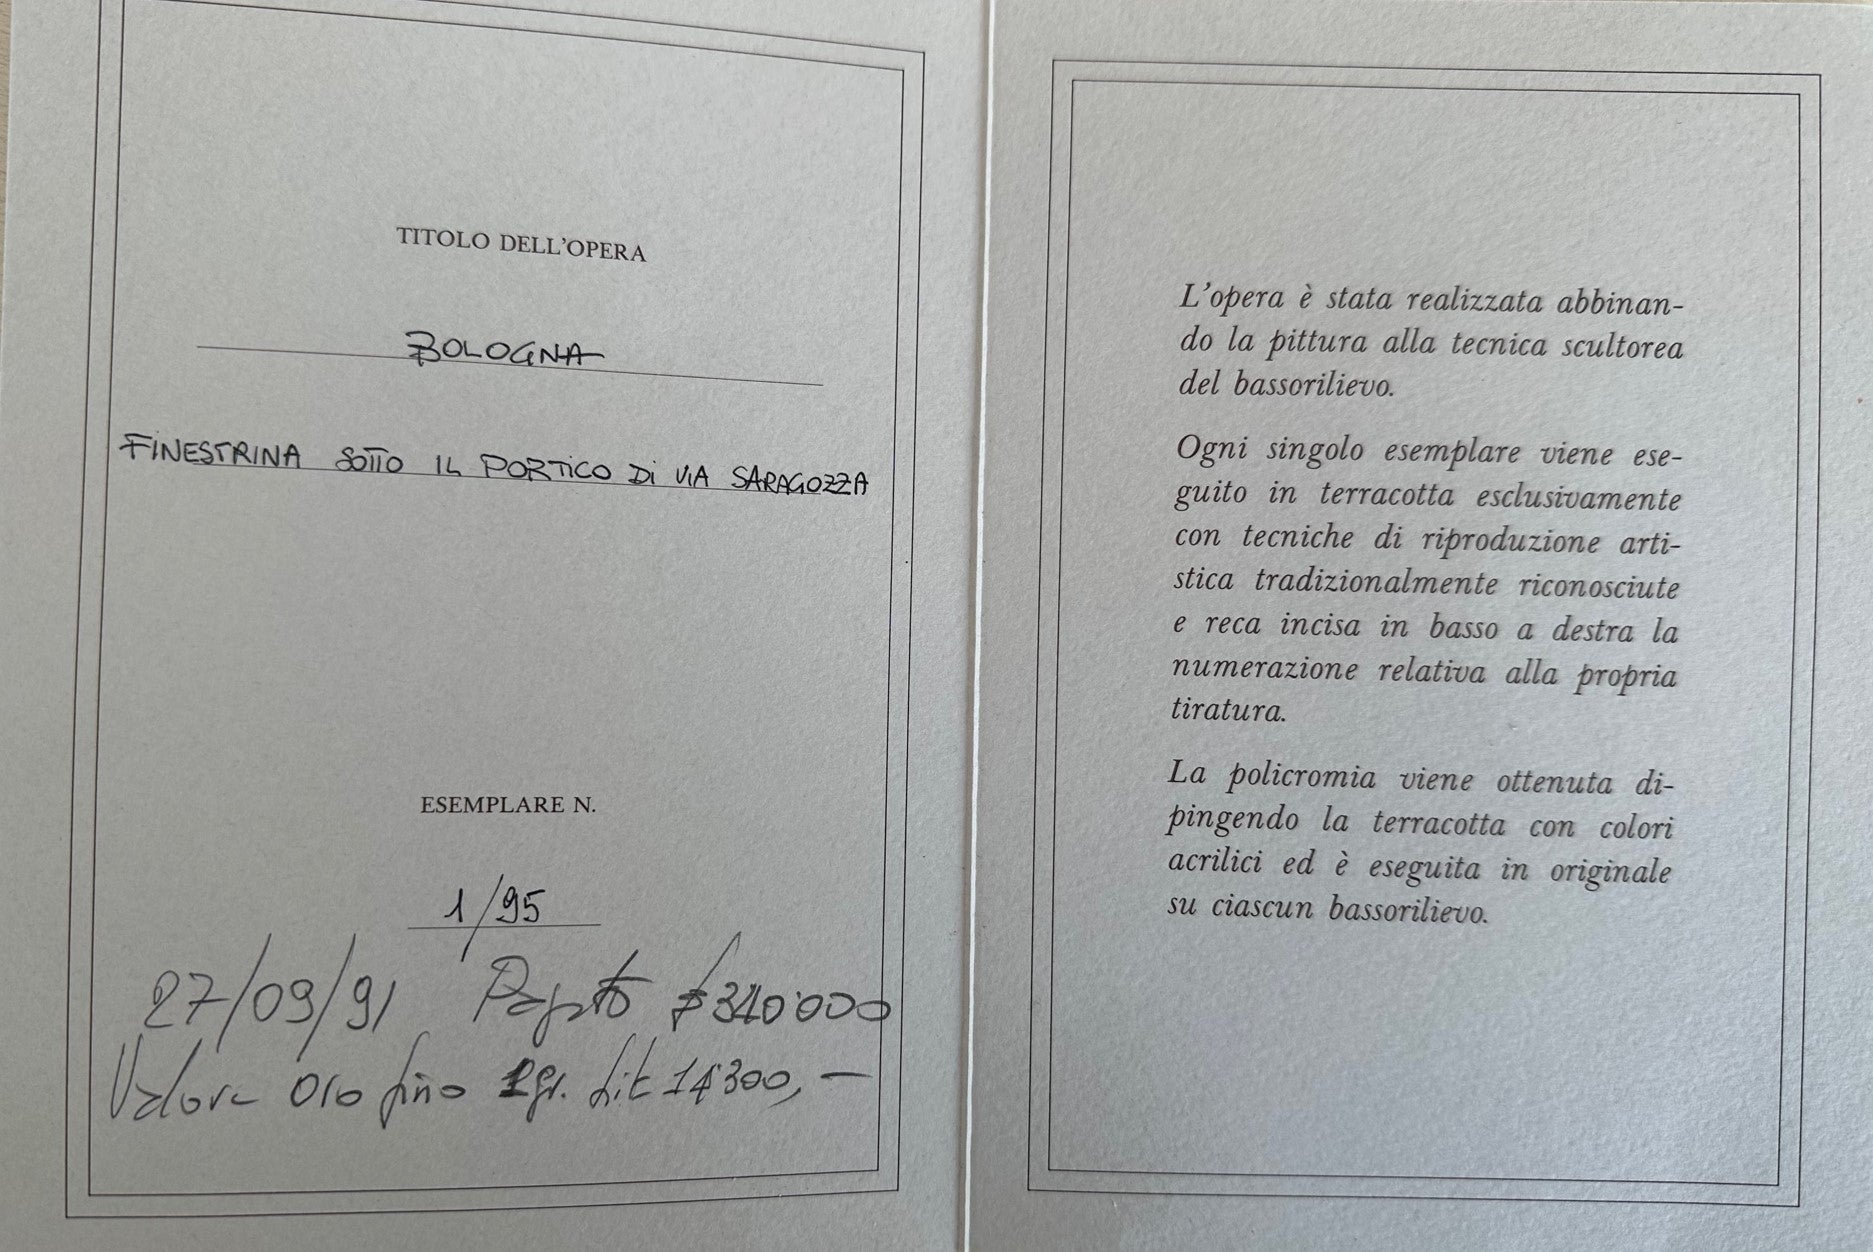 TITOLO DELL'OPERA
BOLOGNA
FINESTRINA SOTTO IL PORTICO DI VIA SARAGOZZA
ESEMPLARE N.
1/95
27/09/91 Pagato £ 340'000
Valore Oro fino 1gr. Lit 14'300,—
L'opera è stata realizzata abbinan-
do la pittura alla tecnica scultorea
del bassorilievo.
Ogni singolo esemplare viene ese-
guito in terracotta esclusivamente
con tecniche di riproduzione arti-
stica tradizionalmente riconosciute
e reca incisa in basso a destra la
numerazione relativa alla propria
tiratura.
La policromia viene ottenuta di-
pingendo la terracotta con colori
acrilici ed è eseguita in originale
su ciascun bassorilievo.